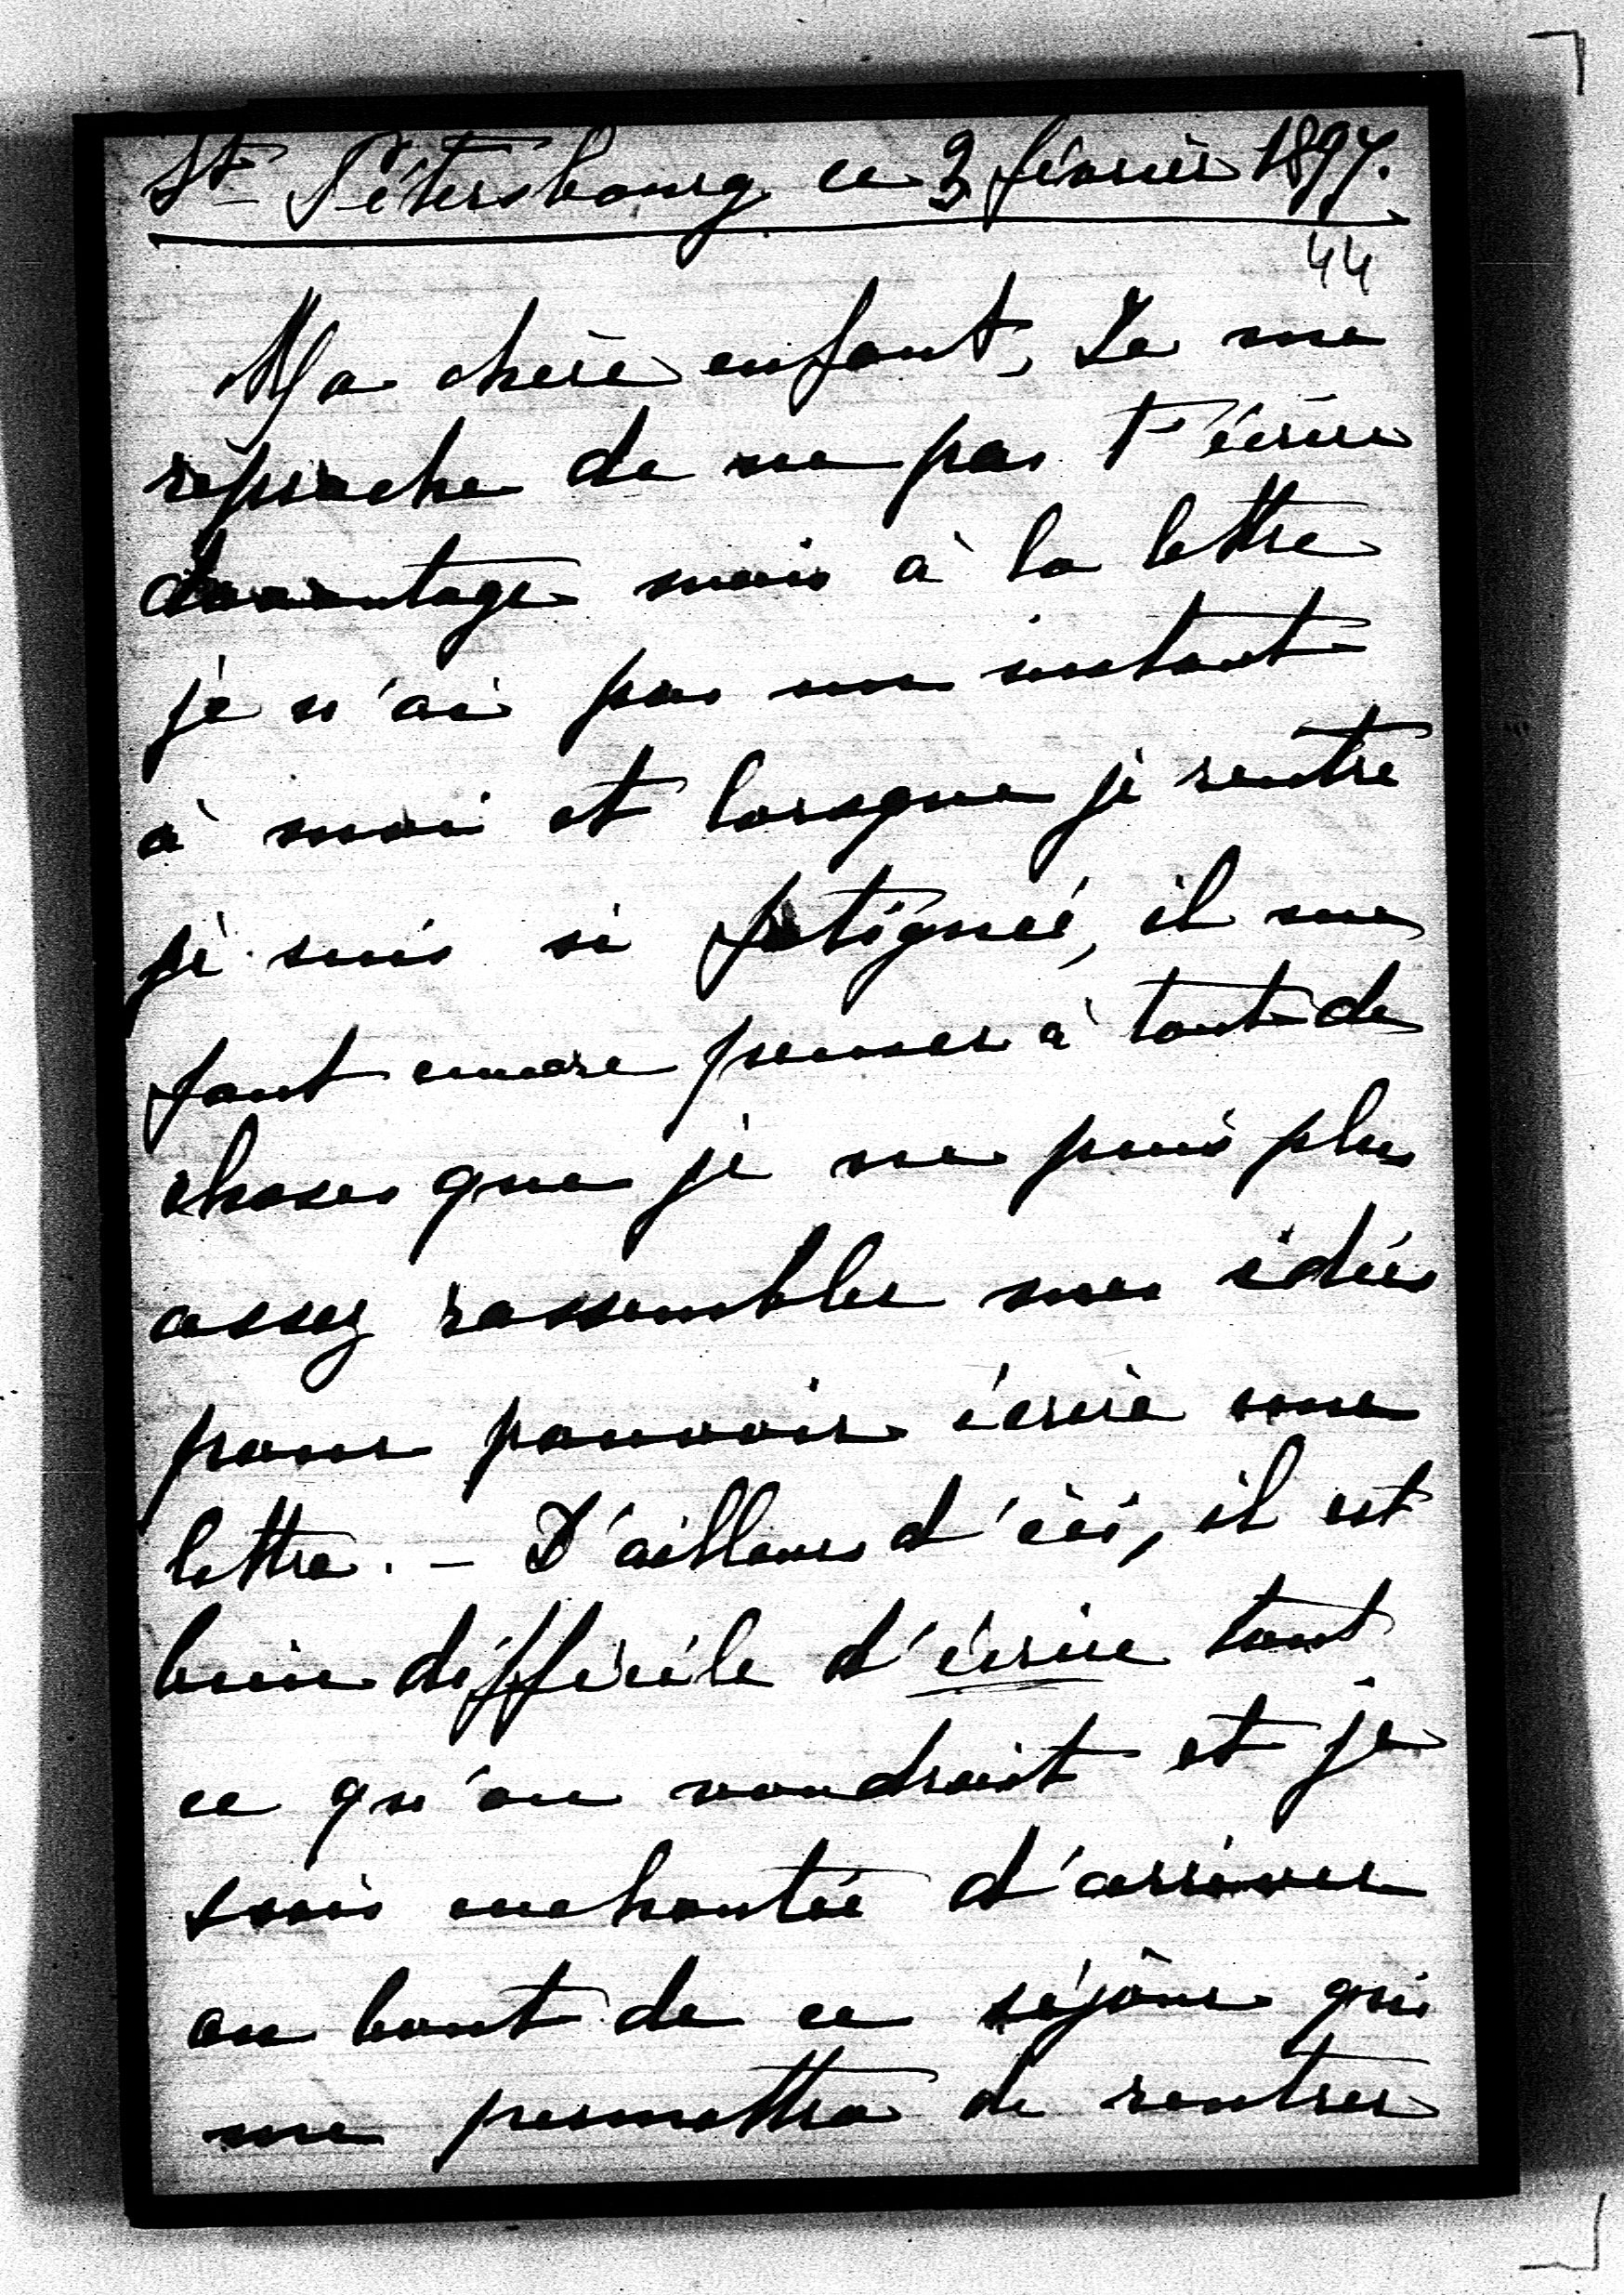 St Pétersbourg ce 3 février 1897.
44
Ma chère enfant, Je me
reproche de ne pas t'écrire
davantage mais à la lettre
je n'ai pas un instant
à moi et lorsque je rentre
je suis si fatiguée, il me
faut encore penser à tant de
choses que je ne puis plus
assez rassembler mes idées
pour pouvoir écrire une
lettre. - D'ailleurs d'ici, il est
bien difficile d'écrire tout
ce qu'on voudrait et je
serais enchantée d'arriver
au bout de ce séjour qui
me permettra de rentrer